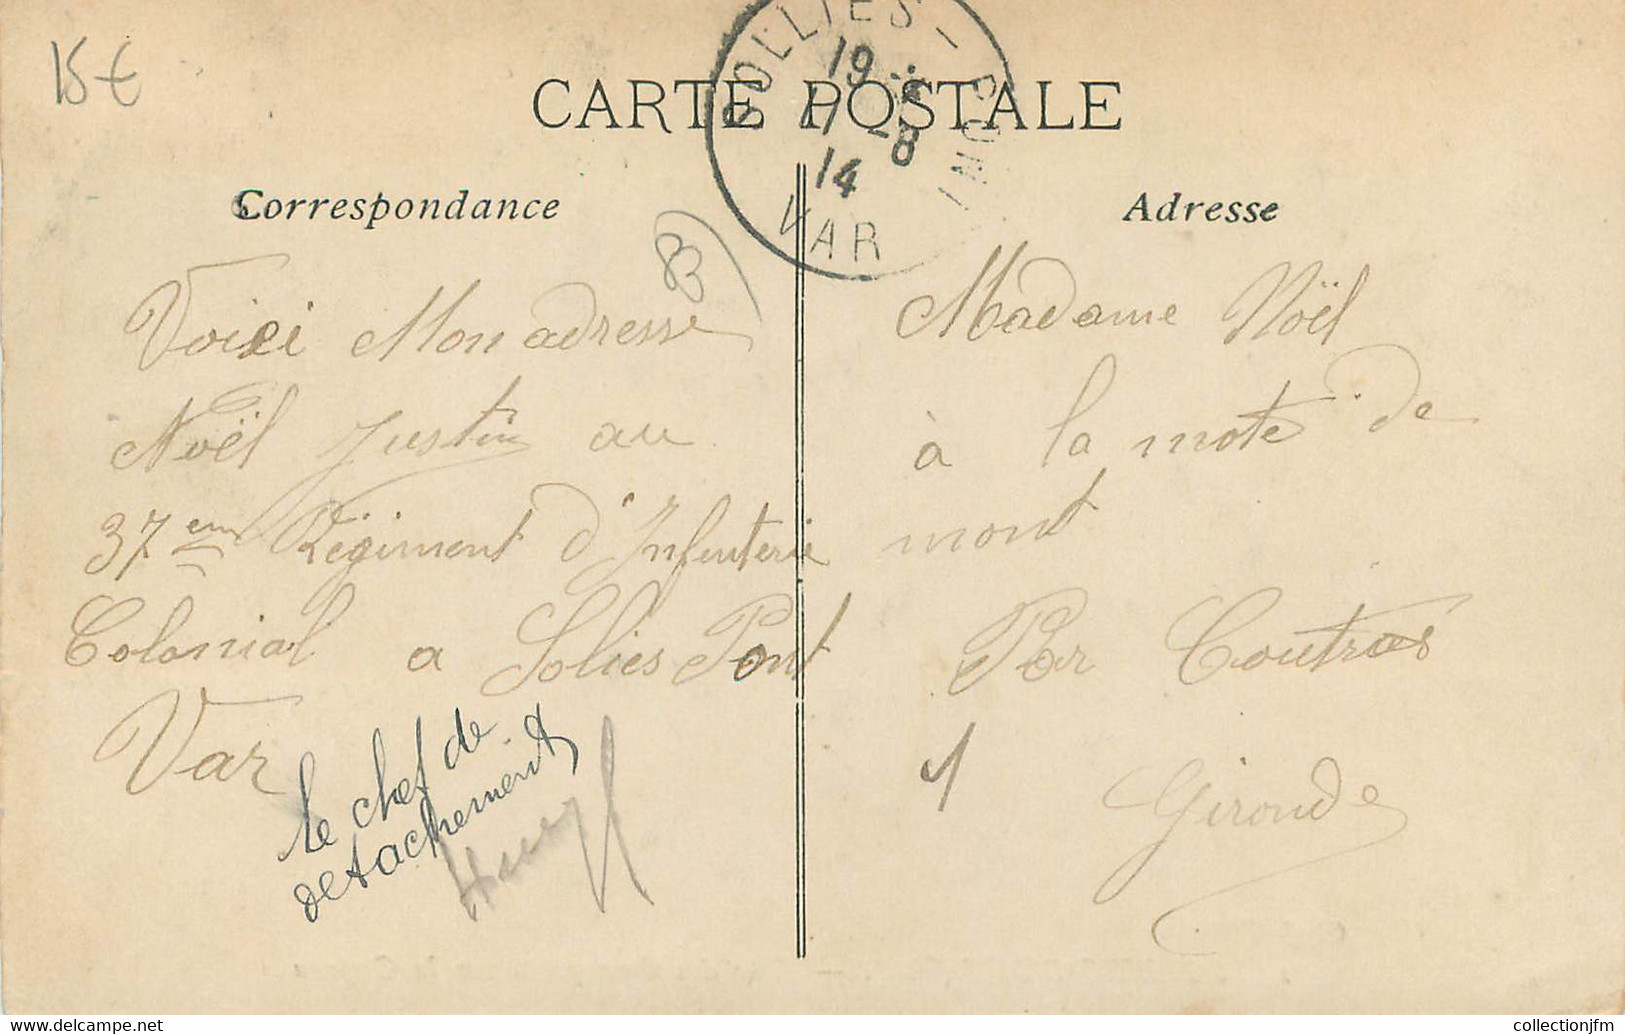 15€
CARTE POSTALE
SOLLIES-PONT
19
17 -8
14
VAR
Correspondance
83
Voici Mon adresse
Noël Justin au
37em Régiment d'Infenterie
Colonial a Solies Pont
Var
le chef de
detachement
Adresse
Madame Noël
à la mote de
mont
Par Coutras
1
Gironde
delcampe.net
collectionjfm